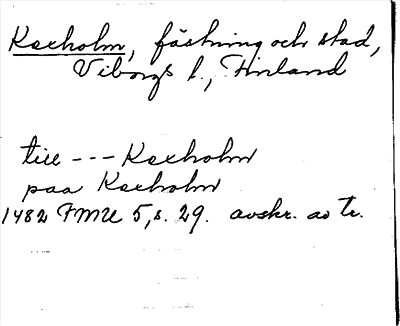 Kexholm, fästning och stad,
Viborgs l., Finland
till --- Kexholm
paa Kexholm
1482 FMU 5, s. 29. avskr. av tr.